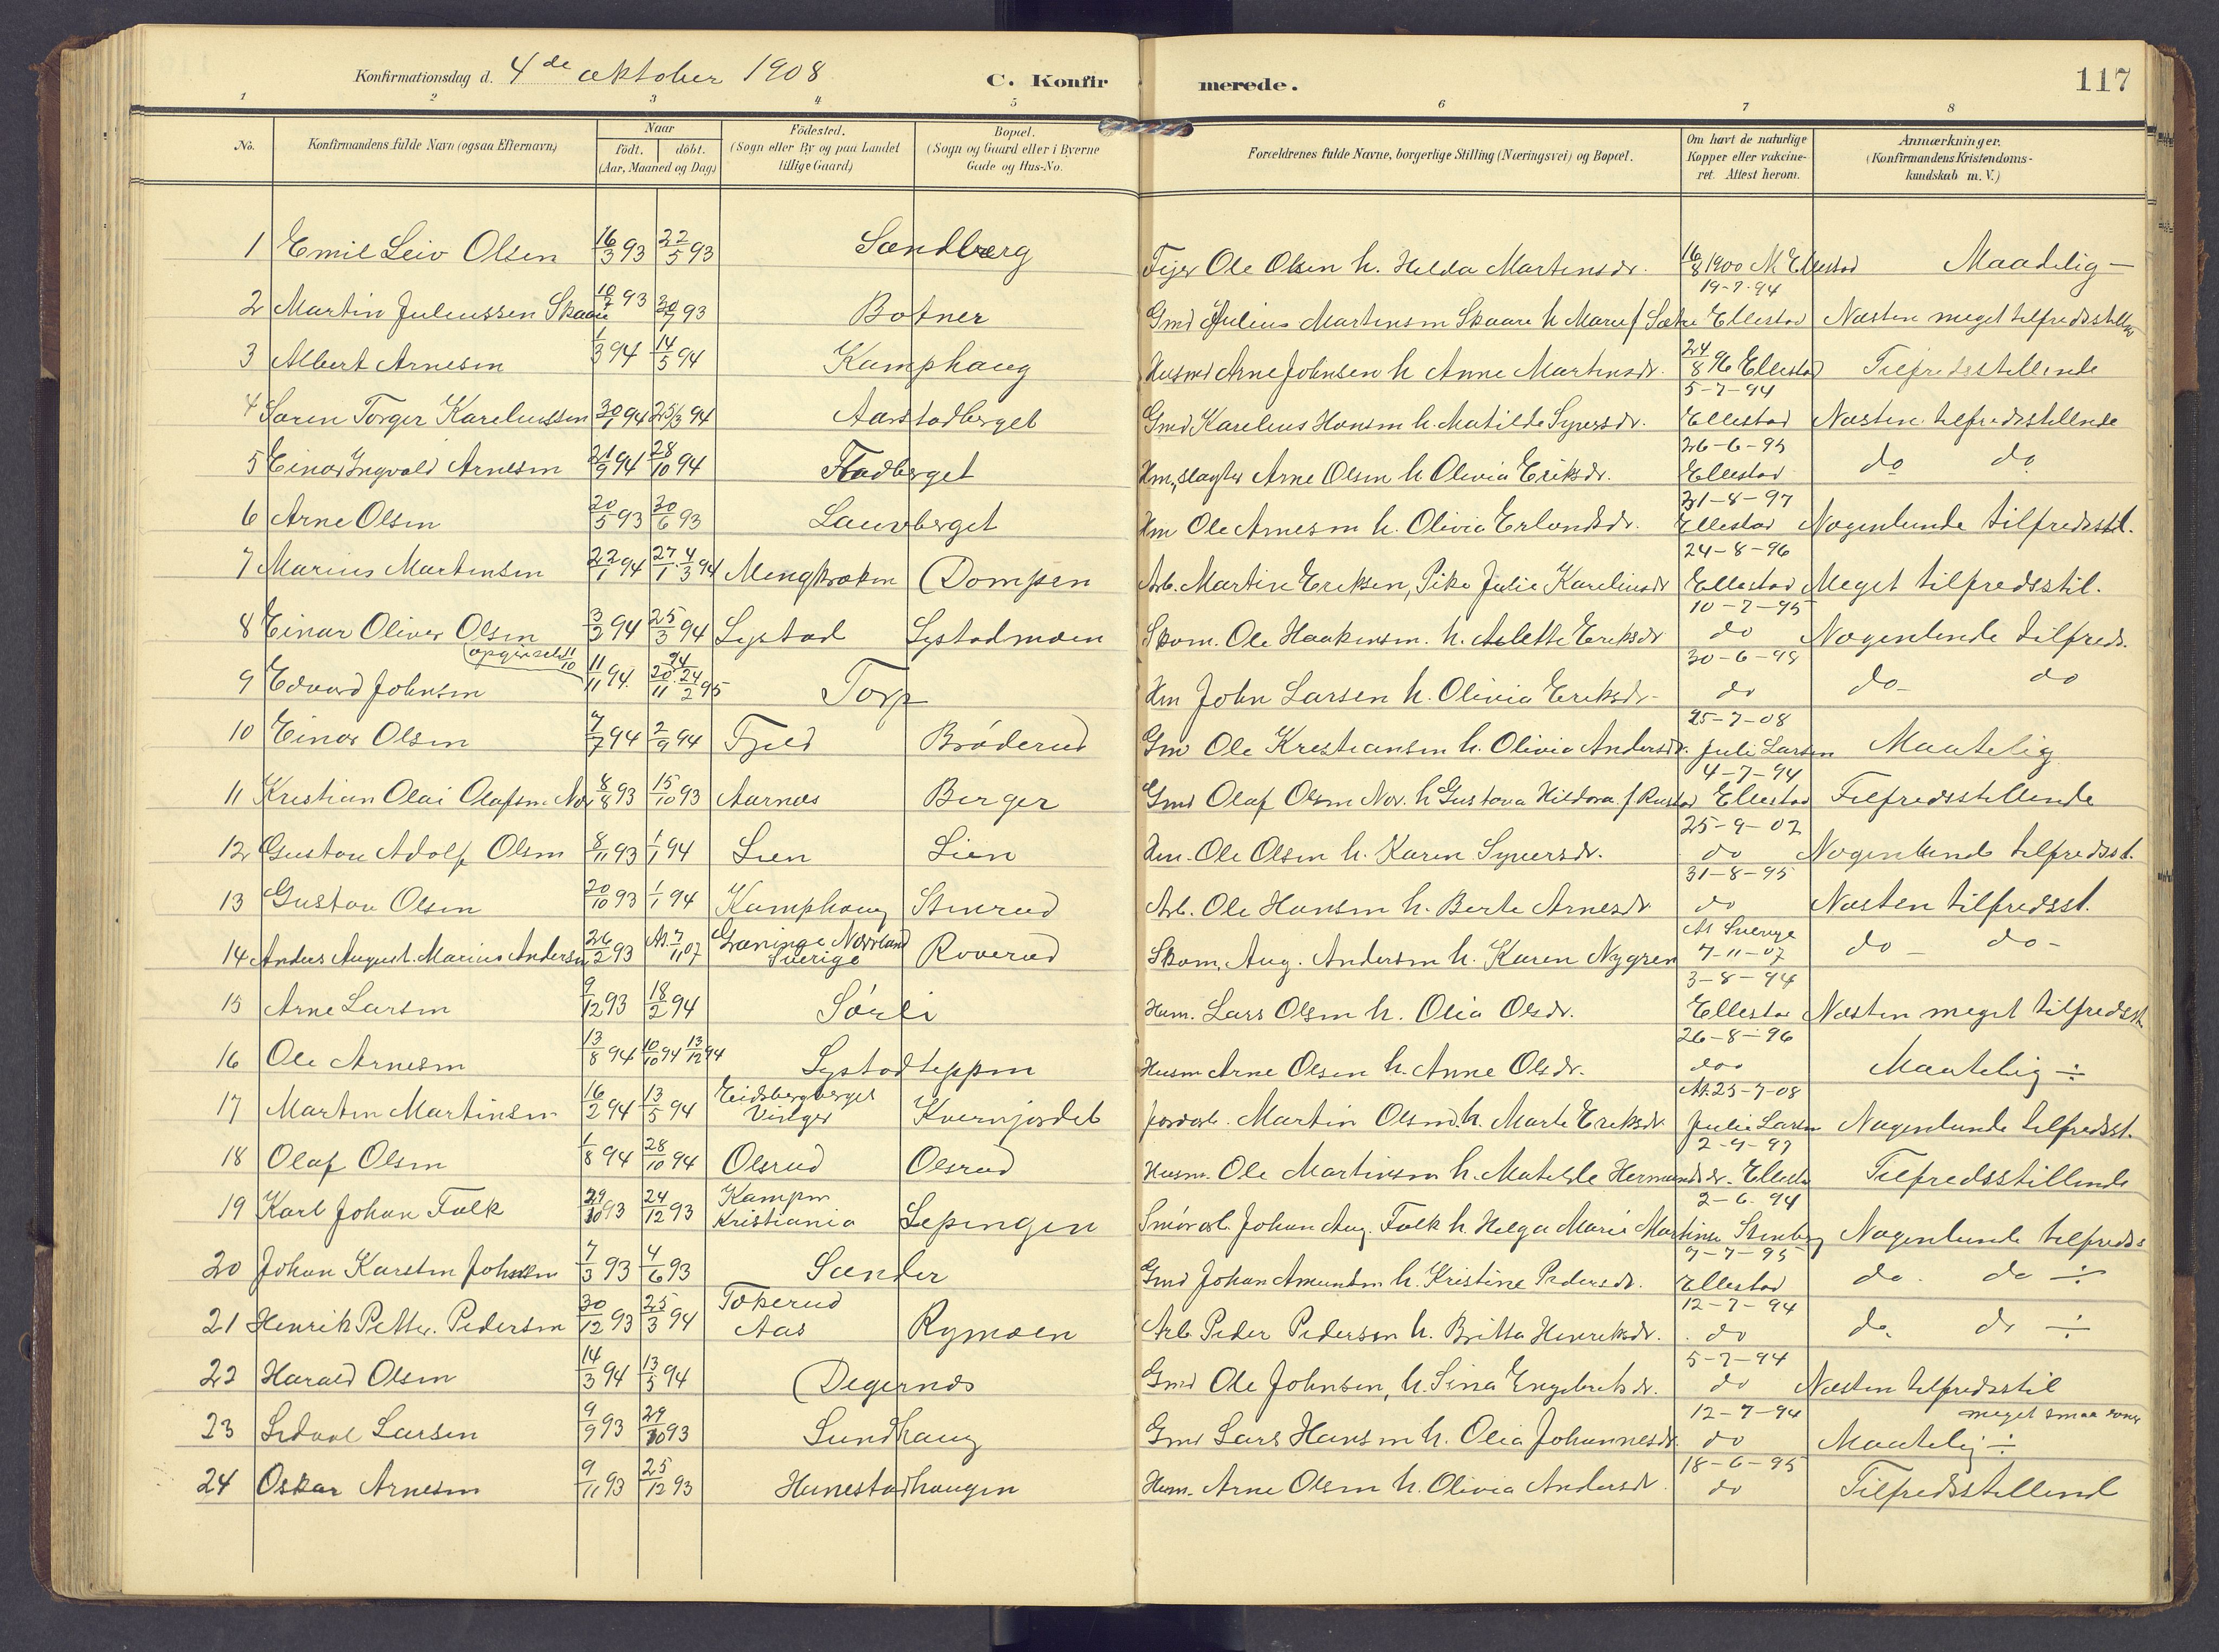 Konfirmationsdag d. 4de oktober 1908 C. Konfirmerede. 117
1 2 3 4 5 6 7 8
No. Konfirmandens fulde Navn (ogsaa Efternavn) Naar født. døbt. (Aar, Maaned og Dag) Födested. (Sogn eller By og paa Landet tillige Gaard) Bopæl. (Sogn og Gaard eller i Byerne Gade og Hus-No. Forældrenes fulde Navne, borgerlige Stilling (Næringsvei) og Bopæl. Om havt de naturlige Kopper eller vakcineret. Attest herom. Anmærkninger. (Konfirmandens Kristendomskundskab m. V.)
1 Emil Leiv Olsen 16/3 93 22/5 93 Sandberg Ole Olsen h. Helda Martinsdr. 16/8 1900 M Ellestad Maadelig —
2 Martin Juliussen Skaare 10/2 93 30/7 93 Botner Gmd Julius Martinsen Skaare h Marie f Sætre 19-7-94 Ellestad Næsten meget tilfredsstillen
3 Albert Arnesen 1/3 94 14/5 94 Kamphaug Husmd Arne Johnsen h Anne Martinsdr. 24/8 96 Ellestad Tilfredsstillende
4 Søren Torger Kareliussen 30/1 94 25/3 94 Aarstadberget Gmd Karelius Hansen h. Matilde Syversdr. 5-7-94 Ellestad Næsten tilfredsstillende
5 Einar Ingvald Arnesen 21/9 94 28/10 94 Fladberget Hm, slagter Arne Olsen h Olivia Eriksdr. 26-6-95 Ellestad do do
6 Arne Olsen 20/5 93 20/6 93 Lauvberget Hm Ole Arnesen h. Olivia Erlandsdr. 31-8-97 Ellestad Nogenlunde tilfredsst.
7 Marius Martinsen 22/1 94 27/1 4/3 94 Mengkroken Dompen Arb. Martin Eriksen, Pike Julie Kareliusdr 24-8-96 Ellestad Meget tilfredsstil.
8 Einar Oliver Olsen 3/3 94 25/3 94 Lystad Lystadmoen Skom. Ole Haakensen h. Aslette Eriksdr 10-7-95 do Nogenlunde tilfreds.
9 Edvard Johnsen 11/11 94. 20/11 94 24/2 95 Torp Hm John Larsen h. Olivia Eriksdr- 30-6-98 do do- do
10 Einar Olsen 7/7 94 2/9 94 Fjeld Bröderud Gm Ole Kristiansen h. Olivia Andersdr. 25-7-08 Juli Larsen Maatelig
11 Kristian Olai Olafsen Nor 8/8 93 15/10 93 Aarnæs Berger Gmd Olaf Olsen Nor. h Gustava Hildora f Rustad 4-7-94 Ellestad Tilfredsstillende
12 Gustav Adolf Olsen 8/11 93 1/1 94 Lien Lien Hm. Ole Olsen h. Karen Syversdr. 25-9-02 do Nogenlunde tilfredsst.
13 Gustav Olsen 20/10 93 1/1 94 Kamphaug Stenrud Arb. Ole Hansen h. Berte Arnesdr 31-8-95 do Næsten tilfredsst.
14 Anders August Marius Andersen 26/2 93 At. 7/11 07 Graninge Norrland Sverige Roverud Skom. Aug. Andersen h. Karen Nygren At Sverige 7-11-07 do - do-
15 Arne Larsen 9/12 93 18/2 94 Sörli Husm. Lars Olsen h. Olia Olsdr. 3-8-94 Ellestad Næsten meget tilfredsst
16 Ole Arnesen 13/8 94 10/10 94 13/12 94 Lystadteppen Husm Arne Olsen h. Anne Olsdr. 26-8-96 do Maatelig ÷
17 Martin Martinsen 16/2 94 13/5 94 Eidsbergberget Vinger Kvernjordet Jordarb. Martin Olsen h. Marte Eriksdr At. 25-7-08 Julie Larsen Nogenlunde tilfredsst.
18 Olaf Olsen 1/8 94 28/10 94 Olsrud Olsrud Husm. Ole Martinsen h. Matilde Hermandsdr. 2-9-97 Ellestad Tilfredsstillende
19 Karl Johan Falk 29/10 93 24/12 93 Kampen Kristiania Sepingen Smörarb. Johan Aug. Falk h. Helga Marie Martinse Stenberg 2-6-94 Nogenlunde tilfreds
20 Johan Karsten Johansen 7/3 93 4/6 93 Sander Gmd Johan Amundsen h. Kristine Pedersdr. 9-7-95 Ellestad do. do ÷
21 Henrik Petter Pedersen 30/12 93 25/3 94 Tokerud Aas Rymoen Arb. Peder Pedersen h. Britta Henriksdr. 12-7-94 do do. do ÷
22 Harald Olsen 14/3 94 13/5 94 Degernæs Gmd Ole Johnsen, h. Sina Engebretsdr. 5-7-94 do Næsten tilfredsstil
23 Larsen 9/9 93 29/10 93 Sundhaug Gmd Lars Hansen h. Olia Johannesdr. 12-7-94 do Maatelig ÷ meget smaa
24 Oskar Arnesen 9/11 93 25/12 93 Hunestadhaugen Husm. Arne Olsen h. Olivia Andersdr. 18-6-95 do Tilfredsstillend